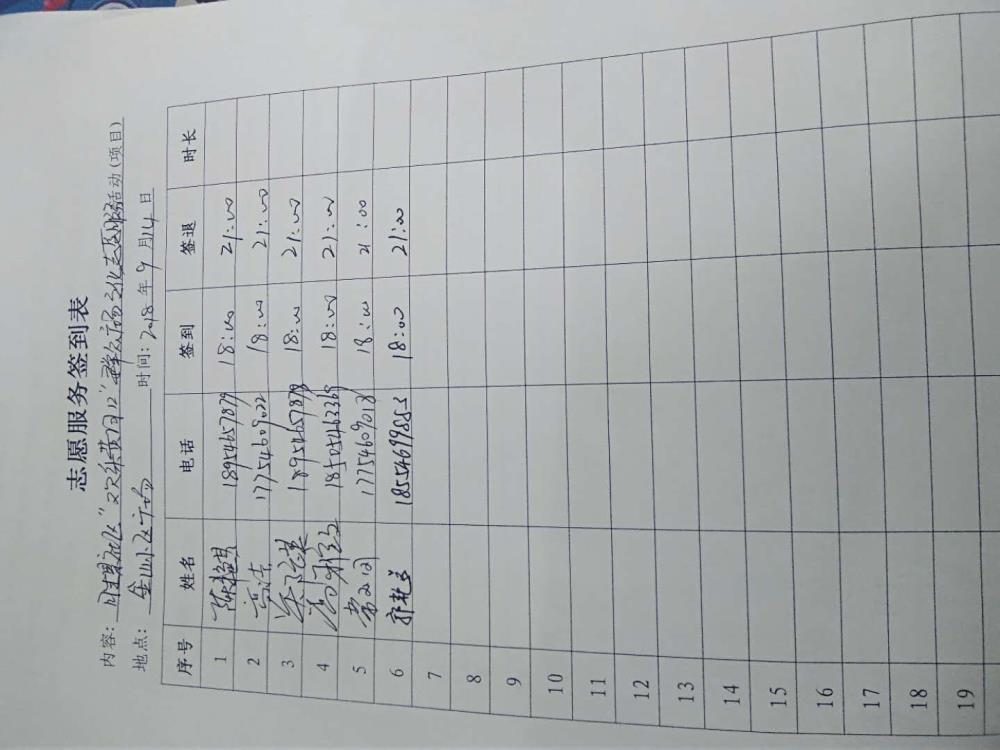 志愿服务签到表
内容: 胜果社区"欢乐黄河口"群众广场文化志愿服务活动(项目)
地点: 金山小区广场 时间: 2018年9月14日
序号 姓名 电话 签到 签退 时长
1 18954657879 18:00 21:00
2 17754609022 18:00 21:00
3 18954657879 18:00 21:00
4 18505463369 18:00 21:00
5 17754609018 18:00 21:00
6 18554699853 18:00 21:00
7
8
9
10
11
12
13
14
15
16
17
18
19